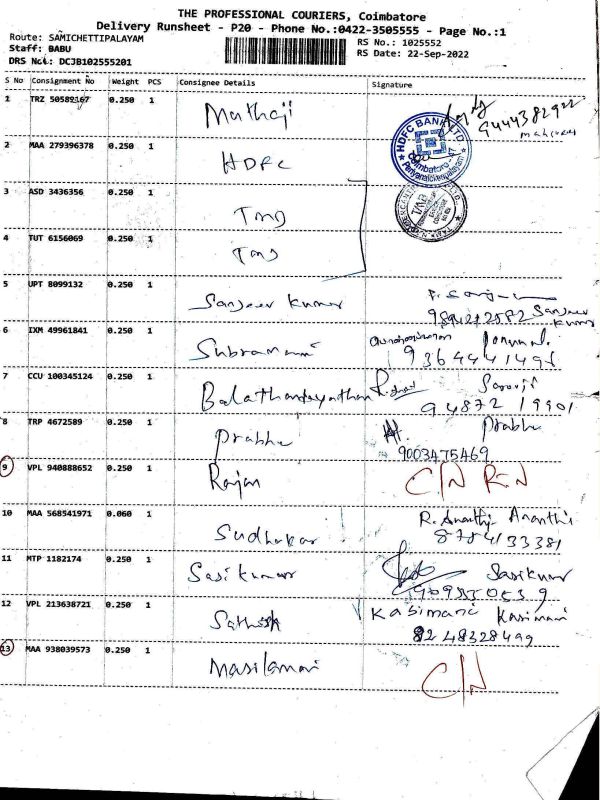 THE PROFESSIONAL COURIERS, Coimbatore
Delivery Runsheet - P20 - Phone No.:0422-3505555 - Page No.:1
Route: SAMICHETTIPALAYAM
Staff: BABU
RS No.: 1025552
DRS No.: DCJB102555201
RS Date: 22-Sep-2022
S No Consignment No Weight PCS Consignee Details Signature
1 TRZ 50589167 0.250 1 Mathaji
9444382922
2 MAA 279396378 0.250 1 HDFC
HDFC BANK LTD
Coimbatore - 47
3 ASD 3436356 0.250 1 Tmg
TMB
4 TUT 6156069 0.250 1 Tmg
5 UPT 8099132 0.250 1 Sanjeev Kumar
Sanjeev
Kumar
6 IXM 49961841 0.250 1 Subramani
7 CCU 100345124 0.250 1 Balathandayuthan
Saroji
94872 19901
8 TRP 4672589 0.250 1 Prabhu Prabhu
9003475469
9 VPL 940888652 0.250 1 Rajan C/N R-N
10 MAA 568541971 0.060 1 Sudhakar R. Ananthi Ananthi
8754133381
11 MTP 1182174 0.250 1 Sasikumar Sasikumar
12 VPL 213638721 0.250 1 Sathish Kasimani Kasimani
8248328499
13 MAA 938039573 0.250 1 Masilamani C/N